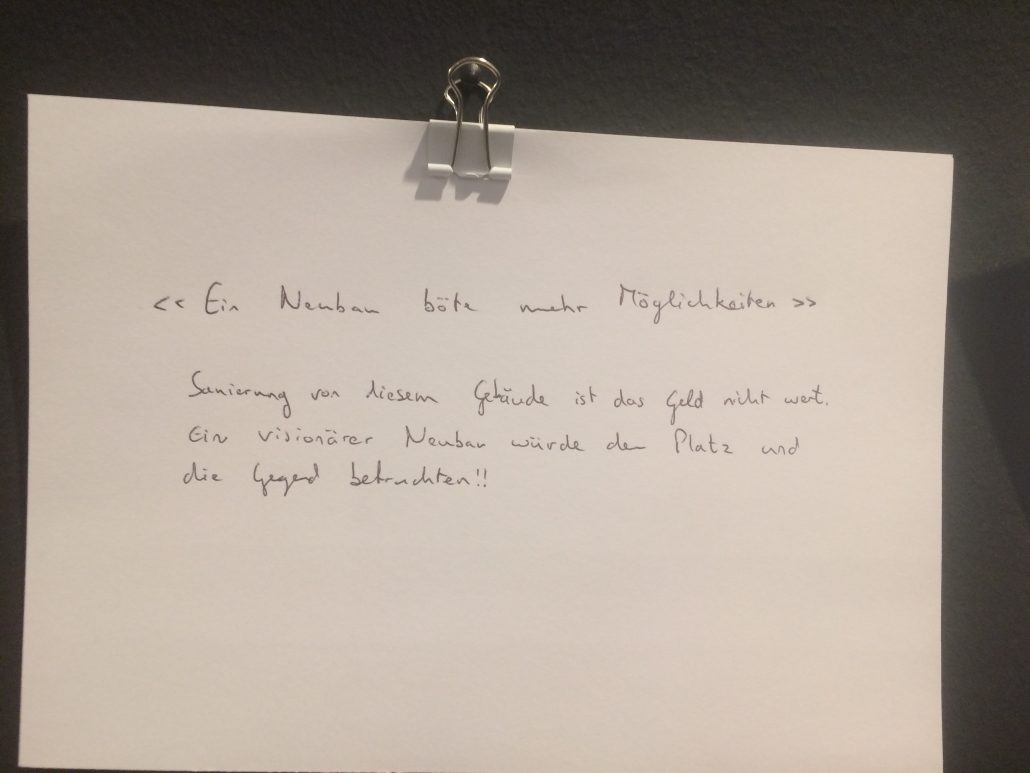 << Ein Neubau böte mehr Möglichkeiten >>
Sanierung von diesem Gebäude ist das Geld nicht wert.
Ein visionärer Neubau würde den Platz und
die Gegend befruchten!!